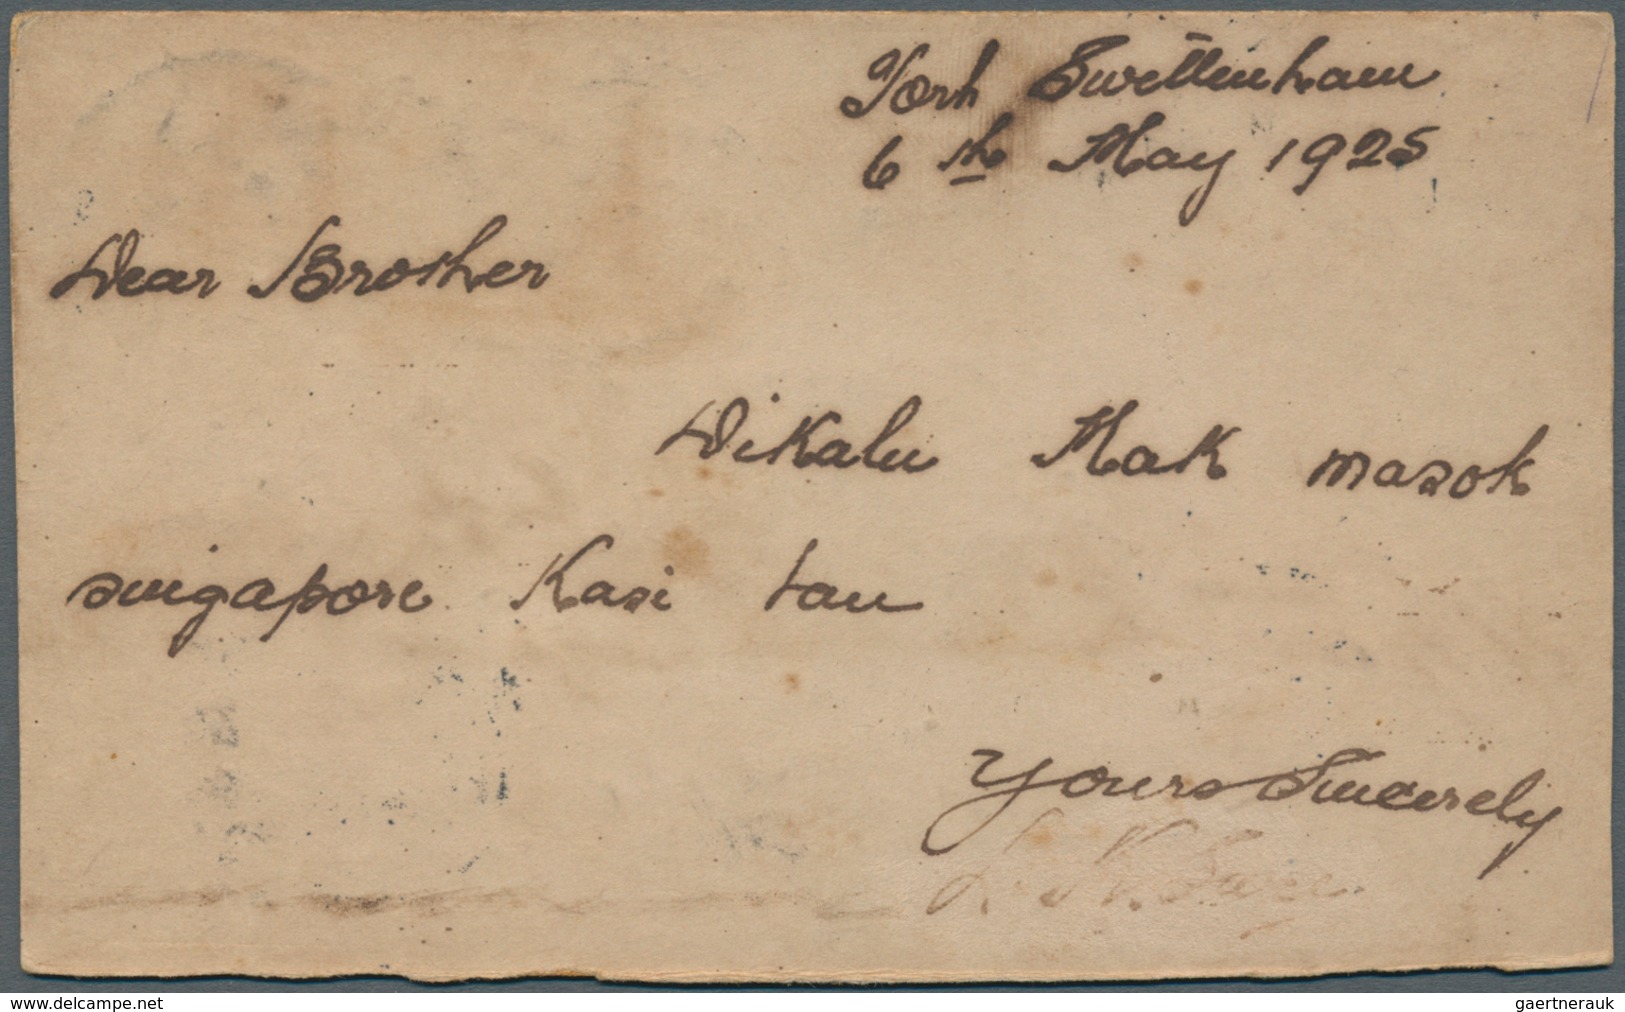 Port Swettenham
6th May 1925
Dear Brother
Dikalu Mak masok
singapore Kasi tau
Yours Sincerely
delcampe.net
gaertnerauk